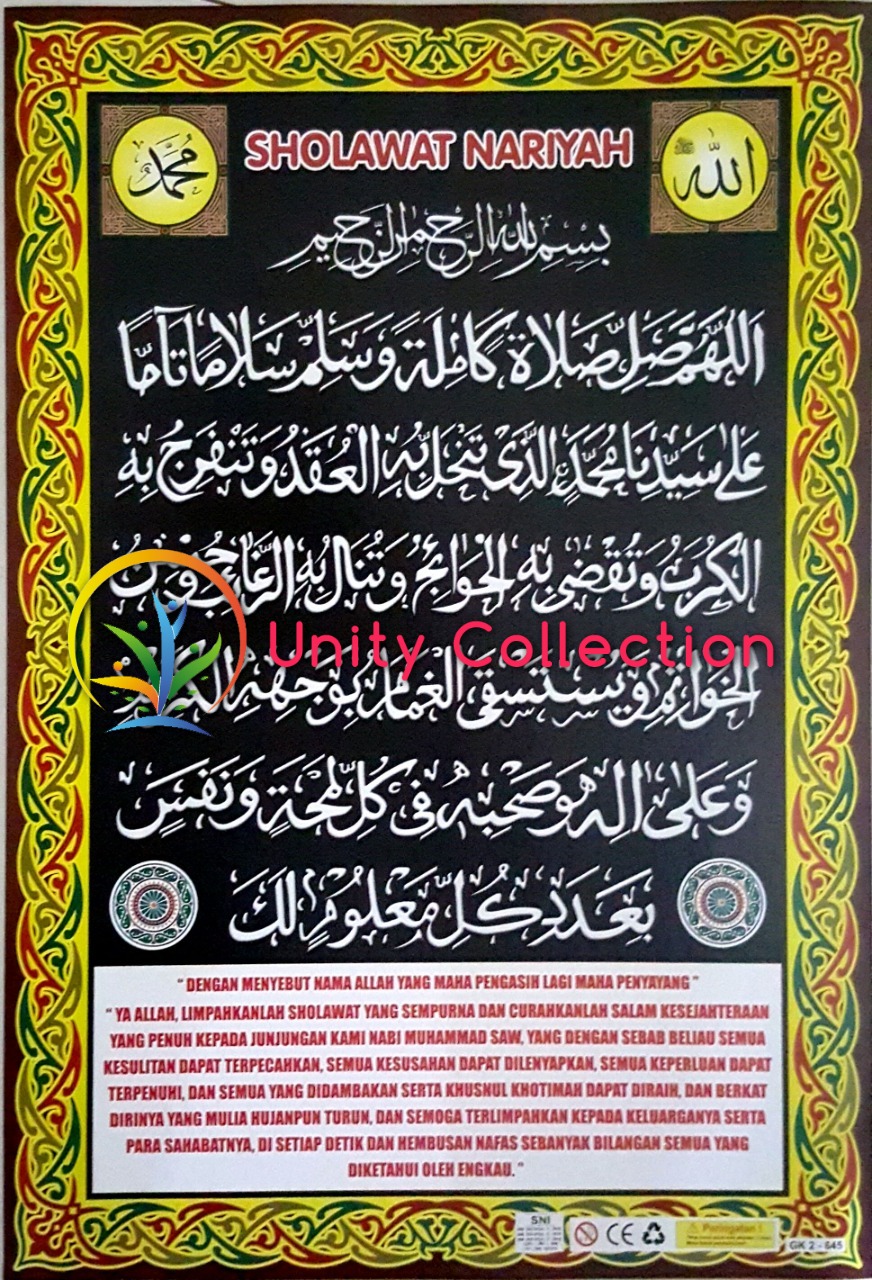 SHOLAWAT NARIYAH
محمد
الله
بسم الله الرحمن الرحيم
اَللّٰهُمَّ صَلِّ صَلَاةً كَامِلَةً وَسَلِّمْ سَلَامًا تَآمًّا
عَلٰى سَيِّدِنَا مُحَمَّدٍ الَّذِى تَنْحَلُّ بِهِ الْعُقَدُ وَتَنْفَرِجُ بِهِ
الْكُرَبُ وَتُقْضٰى بِهِ الْحَوَائِجُ وَتُنَالُ بِهِ الرَّغَائِبُ
الْخَوَاتِمِ وَيُسْتَسْقَى الْغَمَامُ بِوَجْهِهِ
وَعَلٰى اٰلِهِ وَصَحْبِهِ فِى كُلِّ لَمْحَةٍ وَنَفَسٍ
بِعَدَدِ كُلِّ مَعْلُوْمٍ لَكَ
Unity Collection
" DENGAN MENYEBUT NAMA ALLAH YANG MAHA PENGASIH LAGI MAHA PENYAYANG "
" YA ALLAH, LIMPAHKANLAH SHOLAWAT YANG SEMPURNA DAN CURAHKANLAH SALAM KESEJAHTERAAN
YANG PENUH KEPADA JUNJUNGAN KAMI NABI MUHAMMAD SAW, YANG DENGAN SEBAB BELIAU SEMUA
KESULITAN DAPAT TERPECAHKAN, SEMUA KESUSAHAN DAPAT DILENYAPKAN, SEMUA KEPERLUAN DAPAT
TERPENUHI, DAN SEMUA YANG DIDAMBAKAN SERTA KHUSNUL KHOTIMAH DAPAT DIRAIH, DAN BERKAT
DIRINYA YANG MULIA HUJANPUN TURUN, DAN SEMOGA TERLIMPAHKAN KEPADA KELUARGANYA SERTA
PARA SAHABATNYA, DI SETIAP DETIK DAN HEMBUSAN NAFAS SEBANYAK BILANGAN SEMUA YANG
DIKETAHUI OLEH ENGKAU. "
SNI
CE
Peringatan !
GK 2 - 645